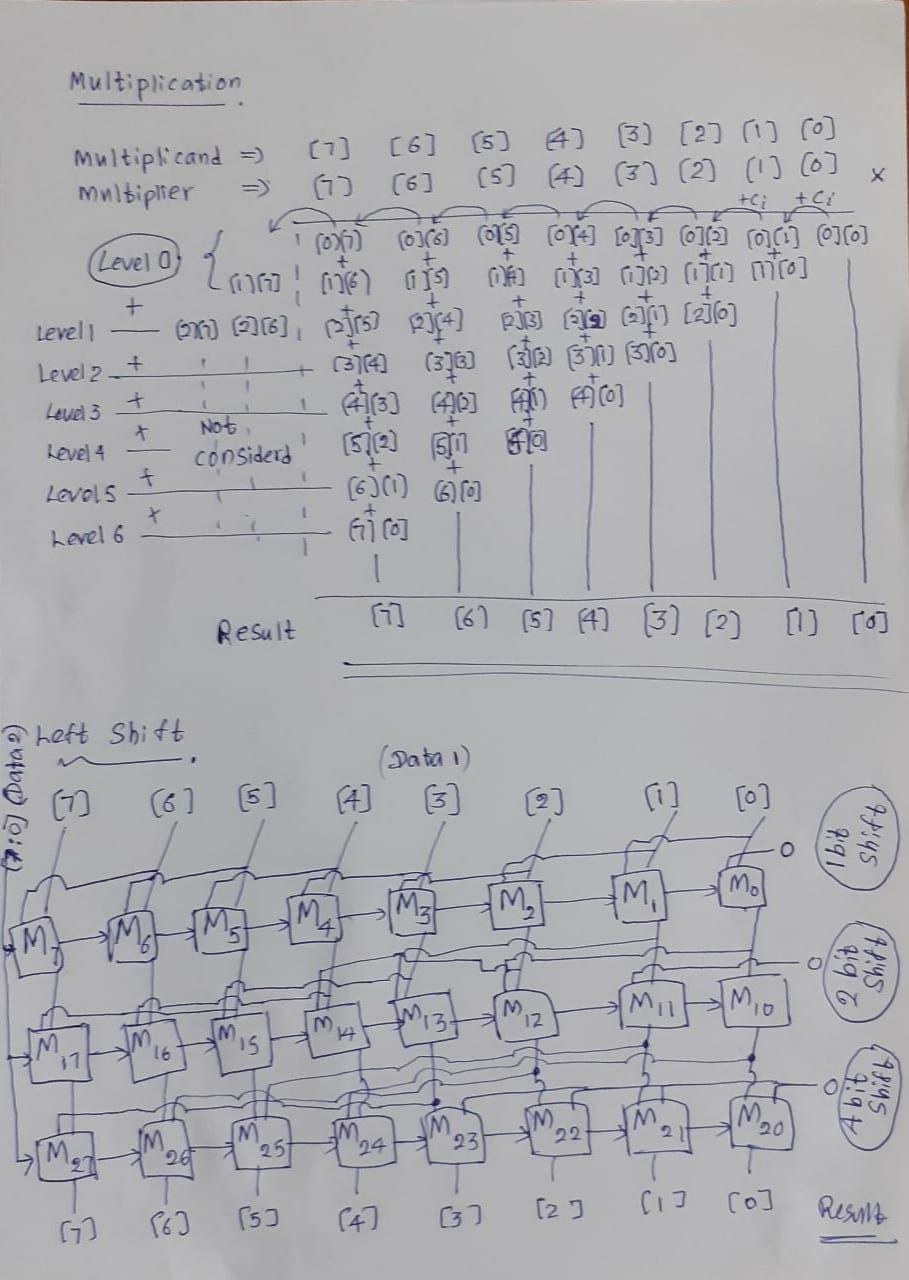 Multiplication.
Multiplicand => [7] [6] [5] [4] [3] [2] [1] [0]
Multiplier => [7] [6] [5] [4] [3] [2] [1] [0] x
+Ci +Ci
Level 0 { [0][7] [0][6] [0][5] [0][4] [0][3] [0][2] [0][1] [0][0]
+ + + + + + +
[1][7] [1][6] [1][5] [1][4] [1][3] [1][2] [1][1] [1][0]
+ + + + + + +
Level 1 [2][7] [2][6] [2][5] [2][4] [2][3] [2][2] [2][1] [2][0]
Level 2 + [3][4] [3][3] [3][2] [3][1] [3][0]
Level 3 + [4][3] [4][2] [4][1] [4][0]
Level 4 + Not considerd [5][2] [5][1] [5][0]
Level 5 + [6][1] [6][0]
Level 6 + [7][0]
Result [7] [6] [5] [4] [3] [2] [1] [0]
Left Shift.
(Data 1)
[7:0] (Data 2)
[7] [6] [5] [4] [3] [2] [1] [0]
0
Shift 1 bit
M7 M6 M5 M4 M3 M2 M1 M0
0
Shift 2 bit
M17 M16 M15 M14 M13 M12 M11 M10
0
Shift 4 bit
M27 M26 M25 M24 M23 M22 M21 M20
[7] [6] [5] [4] [3] [2] [1] [0] Result